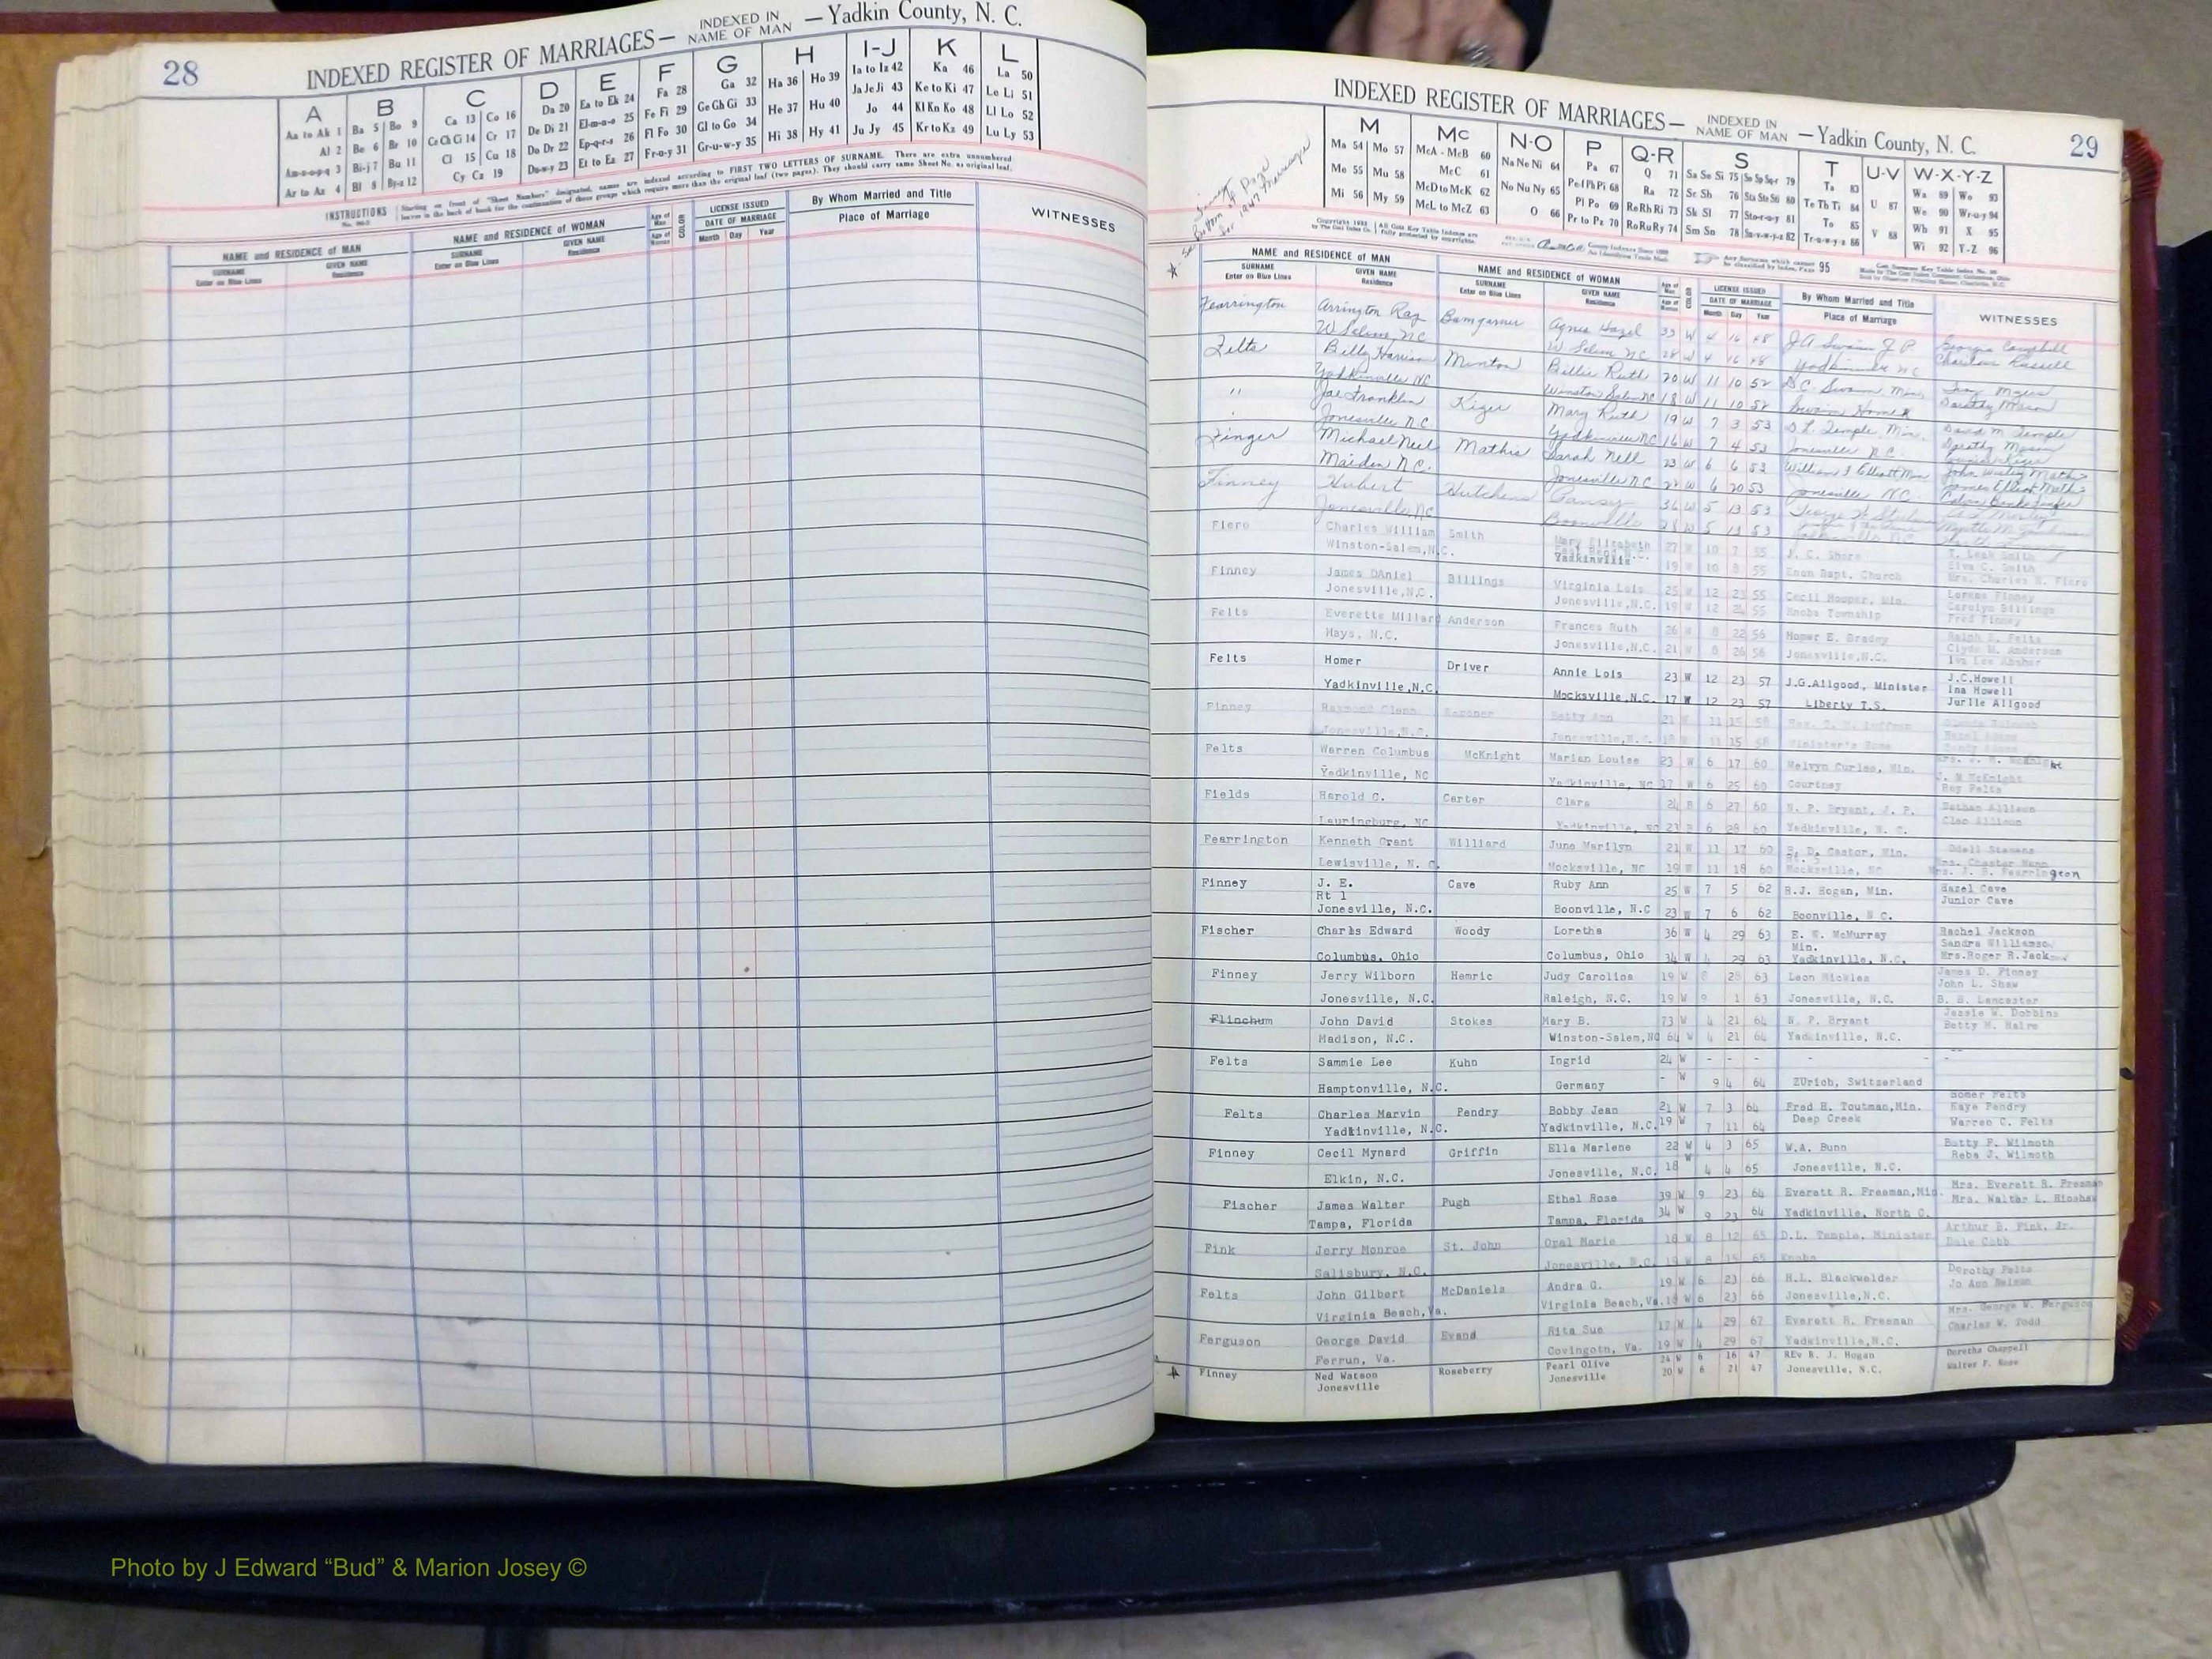 28
INDEXED REGISTER OF MARRIAGES— INDEXED IN NAME OF MAN —Yadkin County, N. C.
A B C D E F G H I-J K L
Aa to Ak 1 Ba 5 Bo 9 Ca 13 Co 16 Da 20 Ea to Ek 24 Fa 28 Ga 32 Ha 36 Ho 39 Ia to Iz 42 Ka 46 La 50
Al 2 Be 6 Br 10 Ce Ch Ci 14 Cr 17 De Di 21 El-m-n-o 25 Fe Fi 29 Ge Gh Gi 33 He 37 Hu 40 Ja Je Ji 43 Ke to Ki 47 Le Li 51
Am-n-o-p-q 3 Bi-j 7 Bu 11 Cl 15 Cu 18 Do Dr 22 Ep-q-r-s 26 Fl Fo 30 Gl to Go 34 Hi 38 Hy 41 Jo 44 Kl Kn Ko 48 Ll Lo 52
Ar to Az 4 Bl 8 By-z 12 Cy Cz 19 Du-w-y 23 Et to Ez 27 Fr-u-y 31 Gr-u-w-y 35 Ju Jy 45 Kr to Kz 49 Lu Ly 53
INSTRUCTIONS Starting on front of "Sheet Numbers" designated, names are indexed according to FIRST TWO LETTERS OF SURNAME. There are extra unnumbered
leaves in the back of book for the continuation of those groups which require more than the original leaf (two pages). They should carry same Sheet No. as original leaf.
NAME and RESIDENCE OF MAN NAME and RESIDENCE OF WOMAN Age of Man COLOR LICENSE ISSUED By Whom Married and Title WITNESSES
SURNAME GIVEN NAME SURNAME GIVEN NAME Age of Woman DATE OF MARRIAGE Place of Marriage
Enter on Blue Lines Residence Enter on Blue Lines Residence Month Day Year
INDEXED REGISTER OF MARRIAGES— INDEXED IN NAME OF MAN —Yadkin County, N. C. 29
M Mc N-O P Q-R S T U-V W-X-Y-Z
Ma 54 Mo 57 McA - McB 60 Na Ne Ni 64 Pa 67 Q 71 Sa Se Si 75 Ta 83 Wa 89 Wo 93
Me 55 Mu 58 McC 61 No Nu Ny 65 Pe Ph Pi 68 Ra 72 Sc Sh 76 Sta Ste Sti 80 Te Th Ti 84 U 87 We 90 Wr-u-y 94
Mi 56 My 59 McD to McK 62 O 66 Pl Po 69 Re Rh Ri 73 Sk Sl 77 Sto-r-u-y 81 To 85 V 88 Wh 91 X 95
McL to McZ 63 Pr to Pz 70 Ro Ru Ry 74 Sm Sn 78 Su-v-w-y-z 82 Tr-u-w-y-z 86 Wi 92 Y-Z 96
See Finney Bottom of Page for 1947 Marriage
NAME and RESIDENCE OF MAN NAME and RESIDENCE OF WOMAN Age of Man LICENSE ISSUED By Whom Married and Title WITNESSES
SURNAME GIVEN NAME SURNAME GIVEN NAME Age of Woman DATE OF MARRIAGE Place of Marriage
Enter on Blue Lines Residence Enter on Blue Lines Residence Month Day Year
Fearrington Arrington Ray Bumgarner Agnes Hazel 33 W 4 16 48 J A Swaim J P Georgia Campbell
W Salem, NC W Salem NC 28 W 4 16 48 Yadkinville NC Charlene Russell
Felts Billy Harrison Minton Billie Ruth 20 W 11 10 52 D.C. Swaim, Min, Troy Myers
Yadkinville NC Winston Salem NC 18 W 11 10 52 Swaim Home Dorothy Mason
" Joe Franklin Kiger Mary Ruth 19 W 7 3 53 D L. Temple, Min, David M Temple
Jonesville N C Yadkinville NC 16 W 7 4 53 Jonesville N.C. Dorothy Mason
Finger Michael Neel Mathis Sarah Nell 23 W 6 6 53 William J Elliott Min John Wesley Mathis
Maiden N.C. Jonesville N C 22 W 6 20 53 Jonesville N.C. James Elliott Mathis
Finney Hubert Hutchens Pansy 36 W 5 13 53
Jonesville, NC Boonville 28 W 5 13 53
Fiero Charles William Smith Mary Elizabeth 27 W 10 7 55 J. C. Shore T. Leak Smith
Winston-Salem, N.C. East Bend N.C. Yadkinville 19 W 10 8 55 Enon Bapt. Church Elva C. Smith
Mrs. Charles N. Fiero
Finney James DAniel Billings Virginia Lois 25 W 12 23 55 Cecil Hooper, Min. Lorene Finney
Jonesville,N.C. Jonesville,N.C. 19 W 12 24 55 Knobs Township Carolyn Billings
Fred Finney
Felts Everette Millard Anderson Frances Ruth 26 W 8 22 56 Homer E. Gradey Ralph E. Felts
Hays, N.C. Jonesville,N.C. 21 W 8 26 56 Jonesville,N.C. Clyde H. Anderson
Iva Lee Absher
Felts Homer Driver Annie Lois 23 W 12 23 57 J.G.Allgood, Minister J.C.Howell
Yadkinville,N.C. Mocksville,N.C. 17 W 12 23 57 Liberty T.S. Ina Howell
Jurlie Allgood
Finney Raymond Glenn Betty Ann 21 W 11 15 58
Jonesville,N.C. Jonesville,N.C. 18 W 11 15 58 Minister's Home
Felts Warren Columbus McKnight Marian Louise 23 W 6 17 60 Melvyn Curles, Min. Mrs. J. M. McKnight
Yadkinville, NC Yadkinville, NC 17 W 6 25 60 Courtney J. M McKnight
Roy Felts
Fields Harold C. Carter Clara 24 B 6 27 60 N. P. Bryant, J. P. Nathan Allison
Lauringburg, NC Yadkinville, NC 23 B 6 28 60 Yadkinville, N. C. Cleo Allison
Fearrington Kenneth Grant Williard June Marilyn 21 W 11 17 60 R. D. Castor, Min. Odell Stamens
Lewisville, N. C. Mocksville, NC 19 W 11 18 60 Rt. 5 Mocksville, NC Mrs. Chester Mann
Mrs. J. R. Fearrington
Finney J. E. Cave Ruby Ann 25 W 7 5 62 R.J. Hogan, Min. Hazel Cave
Rt 1 Junior Cave
Jonesville, N.C. Boonville, N.C 23 W 7 6 62 Boonville, N C.
Fischer Charls Edward Woody Loretha 36 W 4 29 63 E. W. McMurray Rachel Jackson
Min. Sandra Williamson
Columbus, Ohio Columbus, Ohio 34 W 4 29 63 Yadkinville, N.C. Mrs.Roger R.Jackson
Finney Jerry Wilborn Hemric Judy Carolina 19 W 8 28 63 Leon Hickles James D. Finney
John L. Shaw
Jonesville, N.C. Raleigh, N.C. 19 W 9 1 63 Jonesville, N.C. B. B. Lancaster
Flinchum John David Stokes Mary B. 73 W 4 21 64 N. P. Bryant Jessie W. Dobbins
Madison, N.C. Winston-Salem,NC 64 W 4 21 64 Yadkinville, N.C. Betty M. Haire
Felts Sammie Lee Kuhn Ingrid 24 W - - - - -
Hamptonville, N.C. Germany - W 9 4 64 ZUrich, Switzerland
Felts Charles Marvin Pendry Bobby Jean 21 W 7 3 64 Fred H. Toutman,Min. Homer Felts
Yadkinville, N.C. Yadkinville, N.C. 19 W 7 11 64 Deep Creek Kaye Pendry
Warren C. Felts
Finney Cecil Mynard Griffin Ella Marlene 22 W 4 3 65 W.A. Bunn Botty F. Wilmoth
Elkin, N.C. Jonesville, N.C. 18 W 4 4 65 Jonesville, N.C. Reba J. Wilmoth
Fischer James Walter Pugh Ethel Rose 39 W 9 23 64 Everett R. Freeman,Min. Mrs. Everett R. Freeman
Tampa, Florida Tampa, Florida 34 W 9 23 64 Yadkinville, North C. Mrs. Walter L. Hinshaw
Fink Jerry Monroe St. John Opal Marie 18 W 8 12 65 D.L. Temple, Minister Arthur B. Fink, Jr.
Salisbury, N.C. Jonesville, N.C. 19 W 8 15 65 Knobs Dale Cobb
Felts John Gilbert McDaniels Andra G. 19 W 6 23 66 H.L. Blackwelder Dorothy Felts
Virginia Beach,Va. Virginia Beach,Va. 18 W 6 23 66 Jonesville,N.C. Jo Ann Nelson
Ferguson George David Evand Rita Sue 17 W 4 29 67 Everett R. Freeman Mrs. George W. Ferguson
Ferrun, Va. Covingotn, Va. 19 W 4 29 67 Yadkinville,N.C. Charles W. Todd
Finney Ned Watson Roseberry Pearl Olive 24 W 6 16 47 REv R. J. Hogan Doretha Chappell
Jonesville Jonesville 20 W 6 21 47 Jonesville, N.C. Walter F. Rose
Photo by J Edward “Bud” & Marion Josey ©